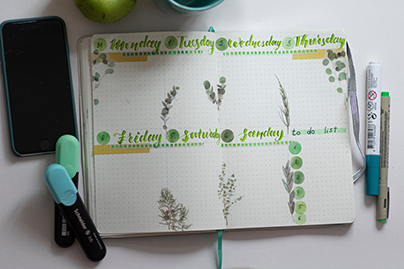 Monday Tuesday Wednesday Thursday
Friday Saturday Sunday to do list
Schneider